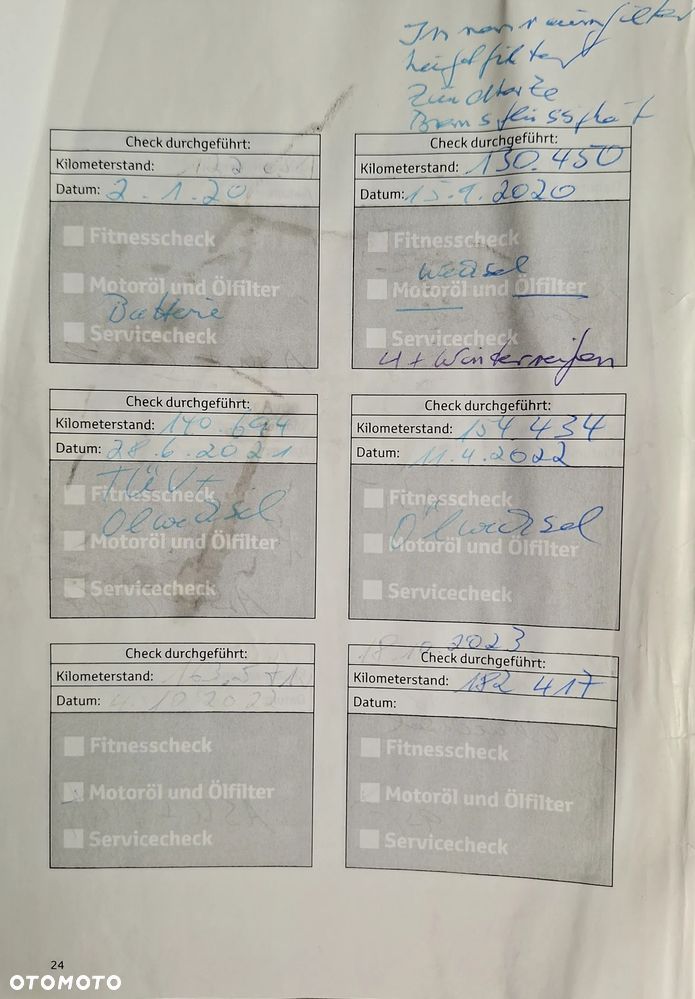 Innenraumfilter
Luftfilter
Zündkerze
Bremsflüssigkeit
Check durchgeführt:
Kilometerstand:
Datum: 2.1.20
Fitnesscheck
Motoröl und Ölfilter
Batterie
Servicecheck
Check durchgeführt:
Kilometerstand: 130.450
Datum: 15.9.2020
Fitnesscheck
wechsel
Motoröl und Ölfilter
Servicecheck
4+ Winterreifen
Check durchgeführt:
Kilometerstand: 140.694
Datum: 28.6.2021
TÜV+
Fitnesscheck
Ölwechsel
Motoröl und Ölfilter
Servicecheck
Check durchgeführt:
Kilometerstand: 154 434
Datum: 11.4.2022
Fitnesscheck
Ölwechsel
Motoröl und Ölfilter
Servicecheck
Check durchgeführt:
Kilometerstand: 163,571
Datum: 4.10.2022
Fitnesscheck
Motoröl und Ölfilter
Servicecheck
2023
Check durchgeführt:
Kilometerstand: 182 417
Datum:
Fitnesscheck
Motoröl und Ölfilter
Servicecheck
24
OTOMOTO